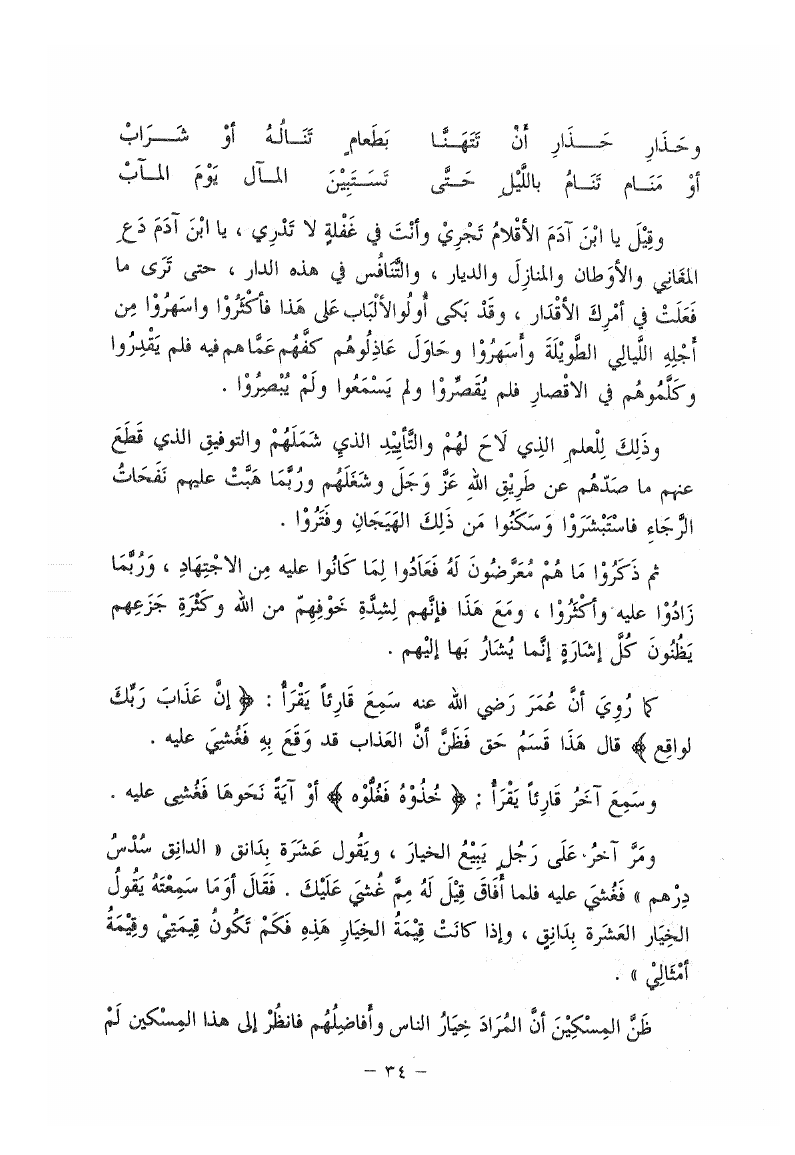 وحَذَارِ حَـــذَارِ أَنْ تَتَهَنَّـا بَطَعامٍ تَنَـالُـهُ أوْ شَـــرَابْ
أوْ مَنَـام تَنَـامُ باللَّيْلِ حَـتَّى تَسَـتَبِيْنَ المـآل يَوْمَ المـآبْ
وقِيْلَ يا ابْنَ آدَمَ الأقْلامُ تَجْرِيْ وأنْتَ في غَفْلةٍ لا تَدْرِي ، يا ابْنَ آدَمَ دَعِ
المَغَانِي والأوْطان والمنازِلَ والديار ، والتَّنَافُس في هذه الدار ، حتى تَرَى ما
فَعَلَتْ في أمْرِكَ الأقْدَار ، وقَدْ بَكى أُولُوالألْبَاب عَلى هَذا فأكْثَرُوْا واسهَرُوْا مِن
أجْلِهِ اللَّيالِي الطَّوِيْلَةَ وأسْهَرُوْا وحَاوَلَ عَاذِلُوهُم كفَّهُم عَمَّا هم فيه فلم يَقْدِرُوا
وكَلَّمُوهُم في الاقْصارِ فلم يُقَصِّرُوْا ولم يَسْمَعُوا ولَمْ يُبْصِرُوْا .
وذَلِكَ لِلْعلمِ الذِي لَاحَ لهُمْ والتَّأيِيْدِ الذي شَمَلَهُمْ والتوفيق الذي قَطَعَ
عنهم ما صَدّهُم عن طَرِيْقِ اللهِ عَزَّ وَجَلَ وشغَلَهُم ورُبَّمَا هَبَّتْ عليهم نَفَحَاتُ
الرَّجَاءِ فاسْتَبْشَرَوْا وَسَكَنُوا مَن ذَلِكَ الهَيَجَانِ وفَتَرُوْا .
ثم ذَكَرُوْا مَا هُمْ مُعَرَّضُونَ لَهُ فَعَادُوا لِمَا كَانُوا عليه مِن الاجْتِهَادِ ، وَرُبَّمَا
زَادُوْا عليه وأكْثَرُوْا ، ومَعَ هَذَا فإنَّهم لِشِدَّةِ خَوْفِهِمْ من الله وكَثْرَةِ جَزَعِهم
يَظُنُونَ كُلَّ إشارَةٍ إنَّما يُشَارُ بَها إليْهم .
كَما رُوِيَ أنَّ عُمَرَ رَضي الله عنه سَمِعَ قَارِئاً يَقْرَأُ : ﴿ إنَّ عَذَابَ رَبِّكَ
لواقِع ﴾ قال هَذَا قَسَمُ حَق فَظَنَّ أنَّ العَذاب قد وَقَعَ بِهِ فَغُشِيَ عليه .
وسَمِعَ آخَرُ قَارِئاً يَقْرَأُ : ﴿ خُذُوْهُ فَغُلُّوْه ﴾ أوْ آيَةً نَحوهَا فَغُشِى عليه .
ومَرَّ آخرُ عَلَى رَجُلٍ يَبِيْعُ الخيارَ ، ويَقُول عَشَرَة بِدَانق « الدانِق سُدْسُ
دِرْهم » فَغُشيَ عليه فلما أَفَاقَ قِيْلَ لَهُ مِمَّ غُشِيَ عَلَيْكَ . فَقَالَ أوَمَا سَمِعْتَهُ يَقُولُ
الخِيَار العَشَرة بِدَانِقٍ ، وإذا كانَتْ قِيْمَةُ الخِيَارِ هَذِهِ فَكَمْ تَكُونُ قِيمَتِيْ وقِيْمَةُ
أمْثَالِيْ » .
ظَنَّ المِسْكِيْنَ أنَّ المُرَادَ خِيَارُ الناس وأفاضِلُهُم فانظُرْ إلى هذا المِسْكين لَمْ
– ٣٤ –